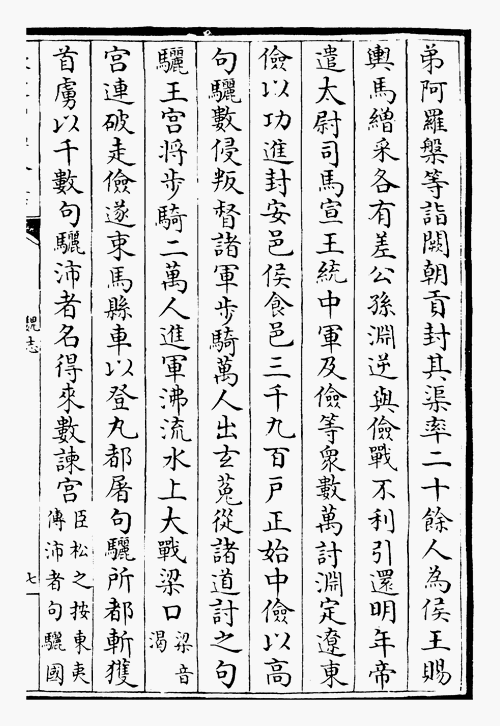 弟阿羅槃等詣闕朝貢封其渠率二十餘人為侯王賜
輿馬繒采各有差公孫淵逆與儉戰不利引還明年帝
遣太尉司馬宣王統中軍及儉等衆數萬討淵定遼東
儉以功進封安邑侯食邑三千九百戶正始中儉以高
句驪數侵叛督諸軍步騎萬人出玄菟從諸道討之句
驪王宮將步騎二萬人進軍沸流水上大戰梁口梁音
渴
宮連破走儉遂束馬縣車以登丸都屠句驪所都斬獲
首虜以千數句驪沛者名得來數諫宮臣松之按東夷
傳沛者句驪國
魏志
七